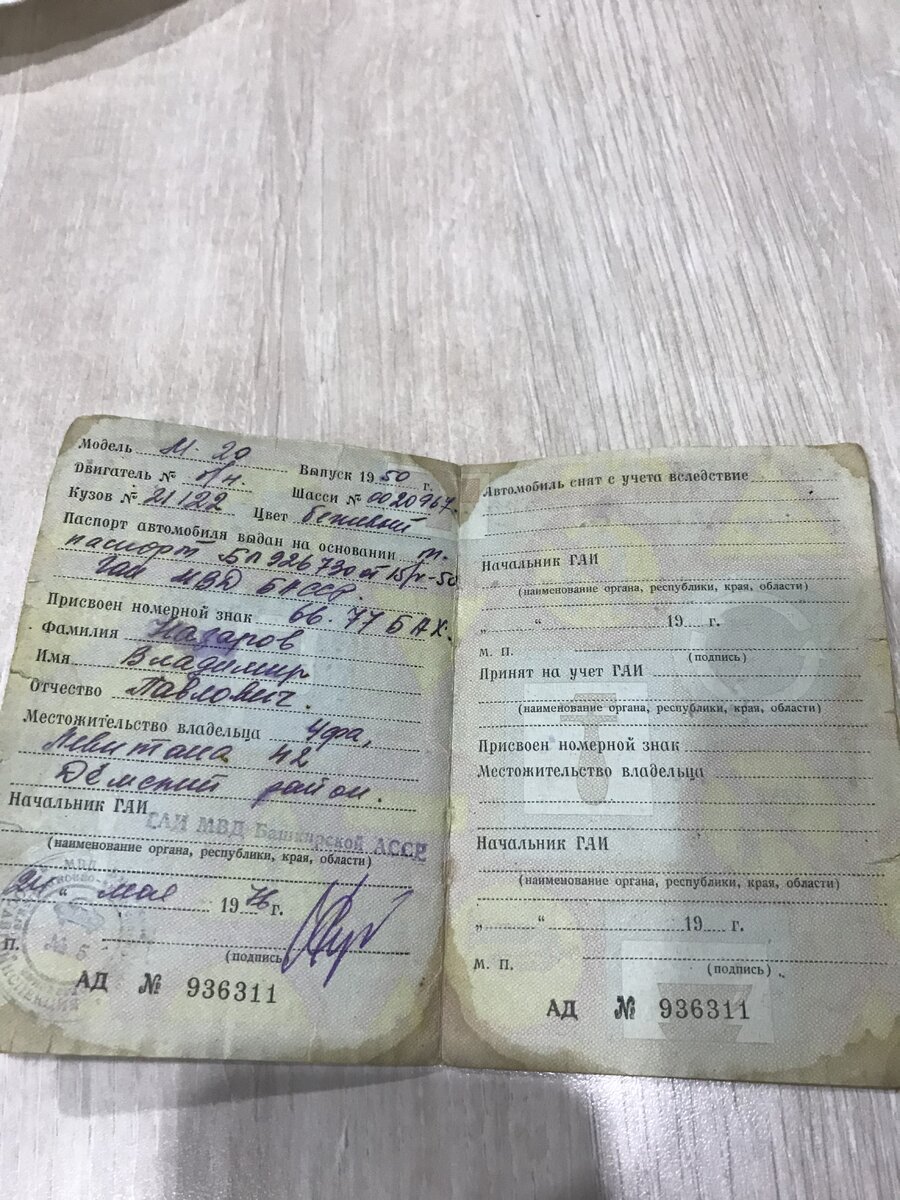 Модель М-20
Двигатель № б/н. Выпуск 1950 г.
Кузов № 21122 Шасси № 0020967.
Цвет бежевый
Паспорт автомобиля выдан на основании т.
паспорт БЛ 926730 от
ГАИ МВД БАССР
Присвоен номерной знак 66-77 БАХ.
Фамилия Назаров
Имя Владимир
Отчество Павлович.
Местожительство владельца Уфа,
Левитана 42
Дёмский район.
Начальник ГАИ
ГАИ МВД Башкирской АССР
(наименование органа, республики, края, области)
24 " мая 1976 г.
М. П.
(подпись)
АД № 936311
Автомобиль снят с учета вследствие
Начальник ГАИ
(наименование органа, республики, края, области)
„ “ 19 г.
М. П. (подпись)
Принят на учет ГАИ
(наименование органа, республики, края, области)
Присвоен номерной знак
Местожительство владельца
Начальник ГАИ
(наименование органа, республики, края, области)
„ “ 19 г.
М. П. (подпись)
АД № 936311